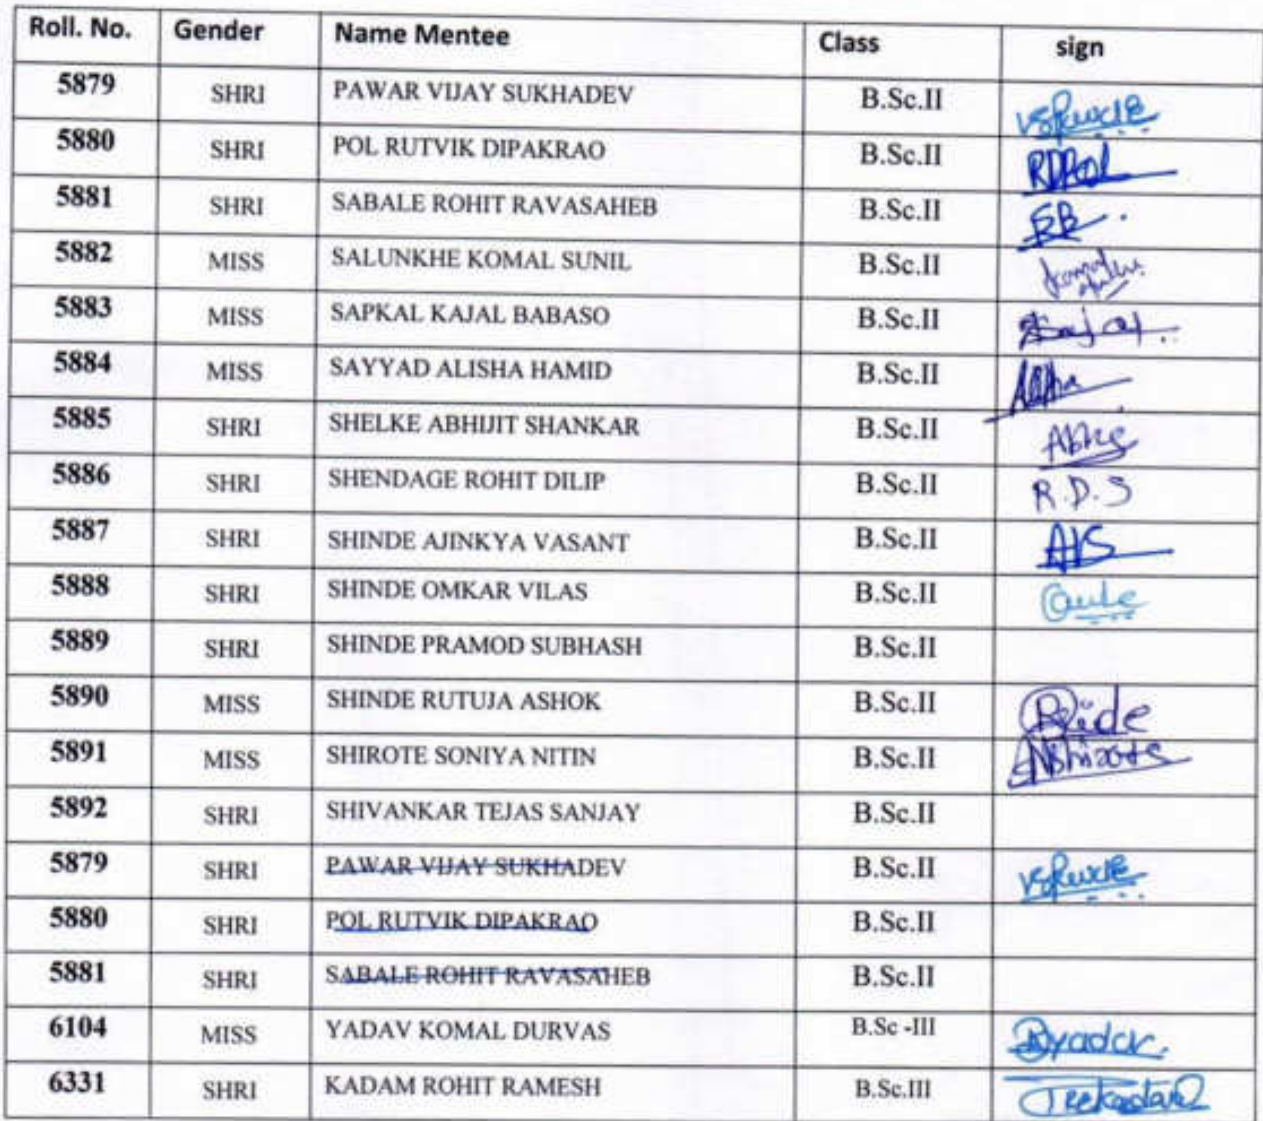 Roll. No. Gender Name Mentee Class sign
5879 SHRI PAWAR VIJAY SUKHADEV B.Sc.II
5880 SHRI POL RUTVIK DIPAKRAO B.Sc.II RDPol
5881 SHRI SABALE ROHIT RAVASAHEB B.Sc.II
5882 MISS SALUNKHE KOMAL SUNIL B.Sc.II
5883 MISS SAPKAL KAJAL BABASO B.Sc.II
5884 MISS SAYYAD ALISHA HAMID B.Sc.II
5885 SHRI SHELKE ABHIJIT SHANKAR B.Sc.II
5886 SHRI SHENDAGE ROHIT DILIP B.Sc.II R.D.S
5887 SHRI SHINDE AJINKYA VASANT B.Sc.II AVS
5888 SHRI SHINDE OMKAR VILAS B.Sc.II
5889 SHRI SHINDE PRAMOD SUBHASH B.Sc.II
5890 MISS SHINDE RUTUJA ASHOK B.Sc.II
5891 MISS SHIROTE SONIYA NITIN B.Sc.II
5892 SHRI SHIVANKAR TEJAS SANJAY B.Sc.II
5879 SHRI PAWAR VIJAY SUKHADEV B.Sc.II
5880 SHRI POL RUTVIK DIPAKRAO B.Sc.II
5881 SHRI SABALE ROHIT RAVASAHEB B.Sc.II
6104 MISS YADAV KOMAL DURVAS B.Sc -III
6331 SHRI KADAM ROHIT RAMESH B.Sc.III